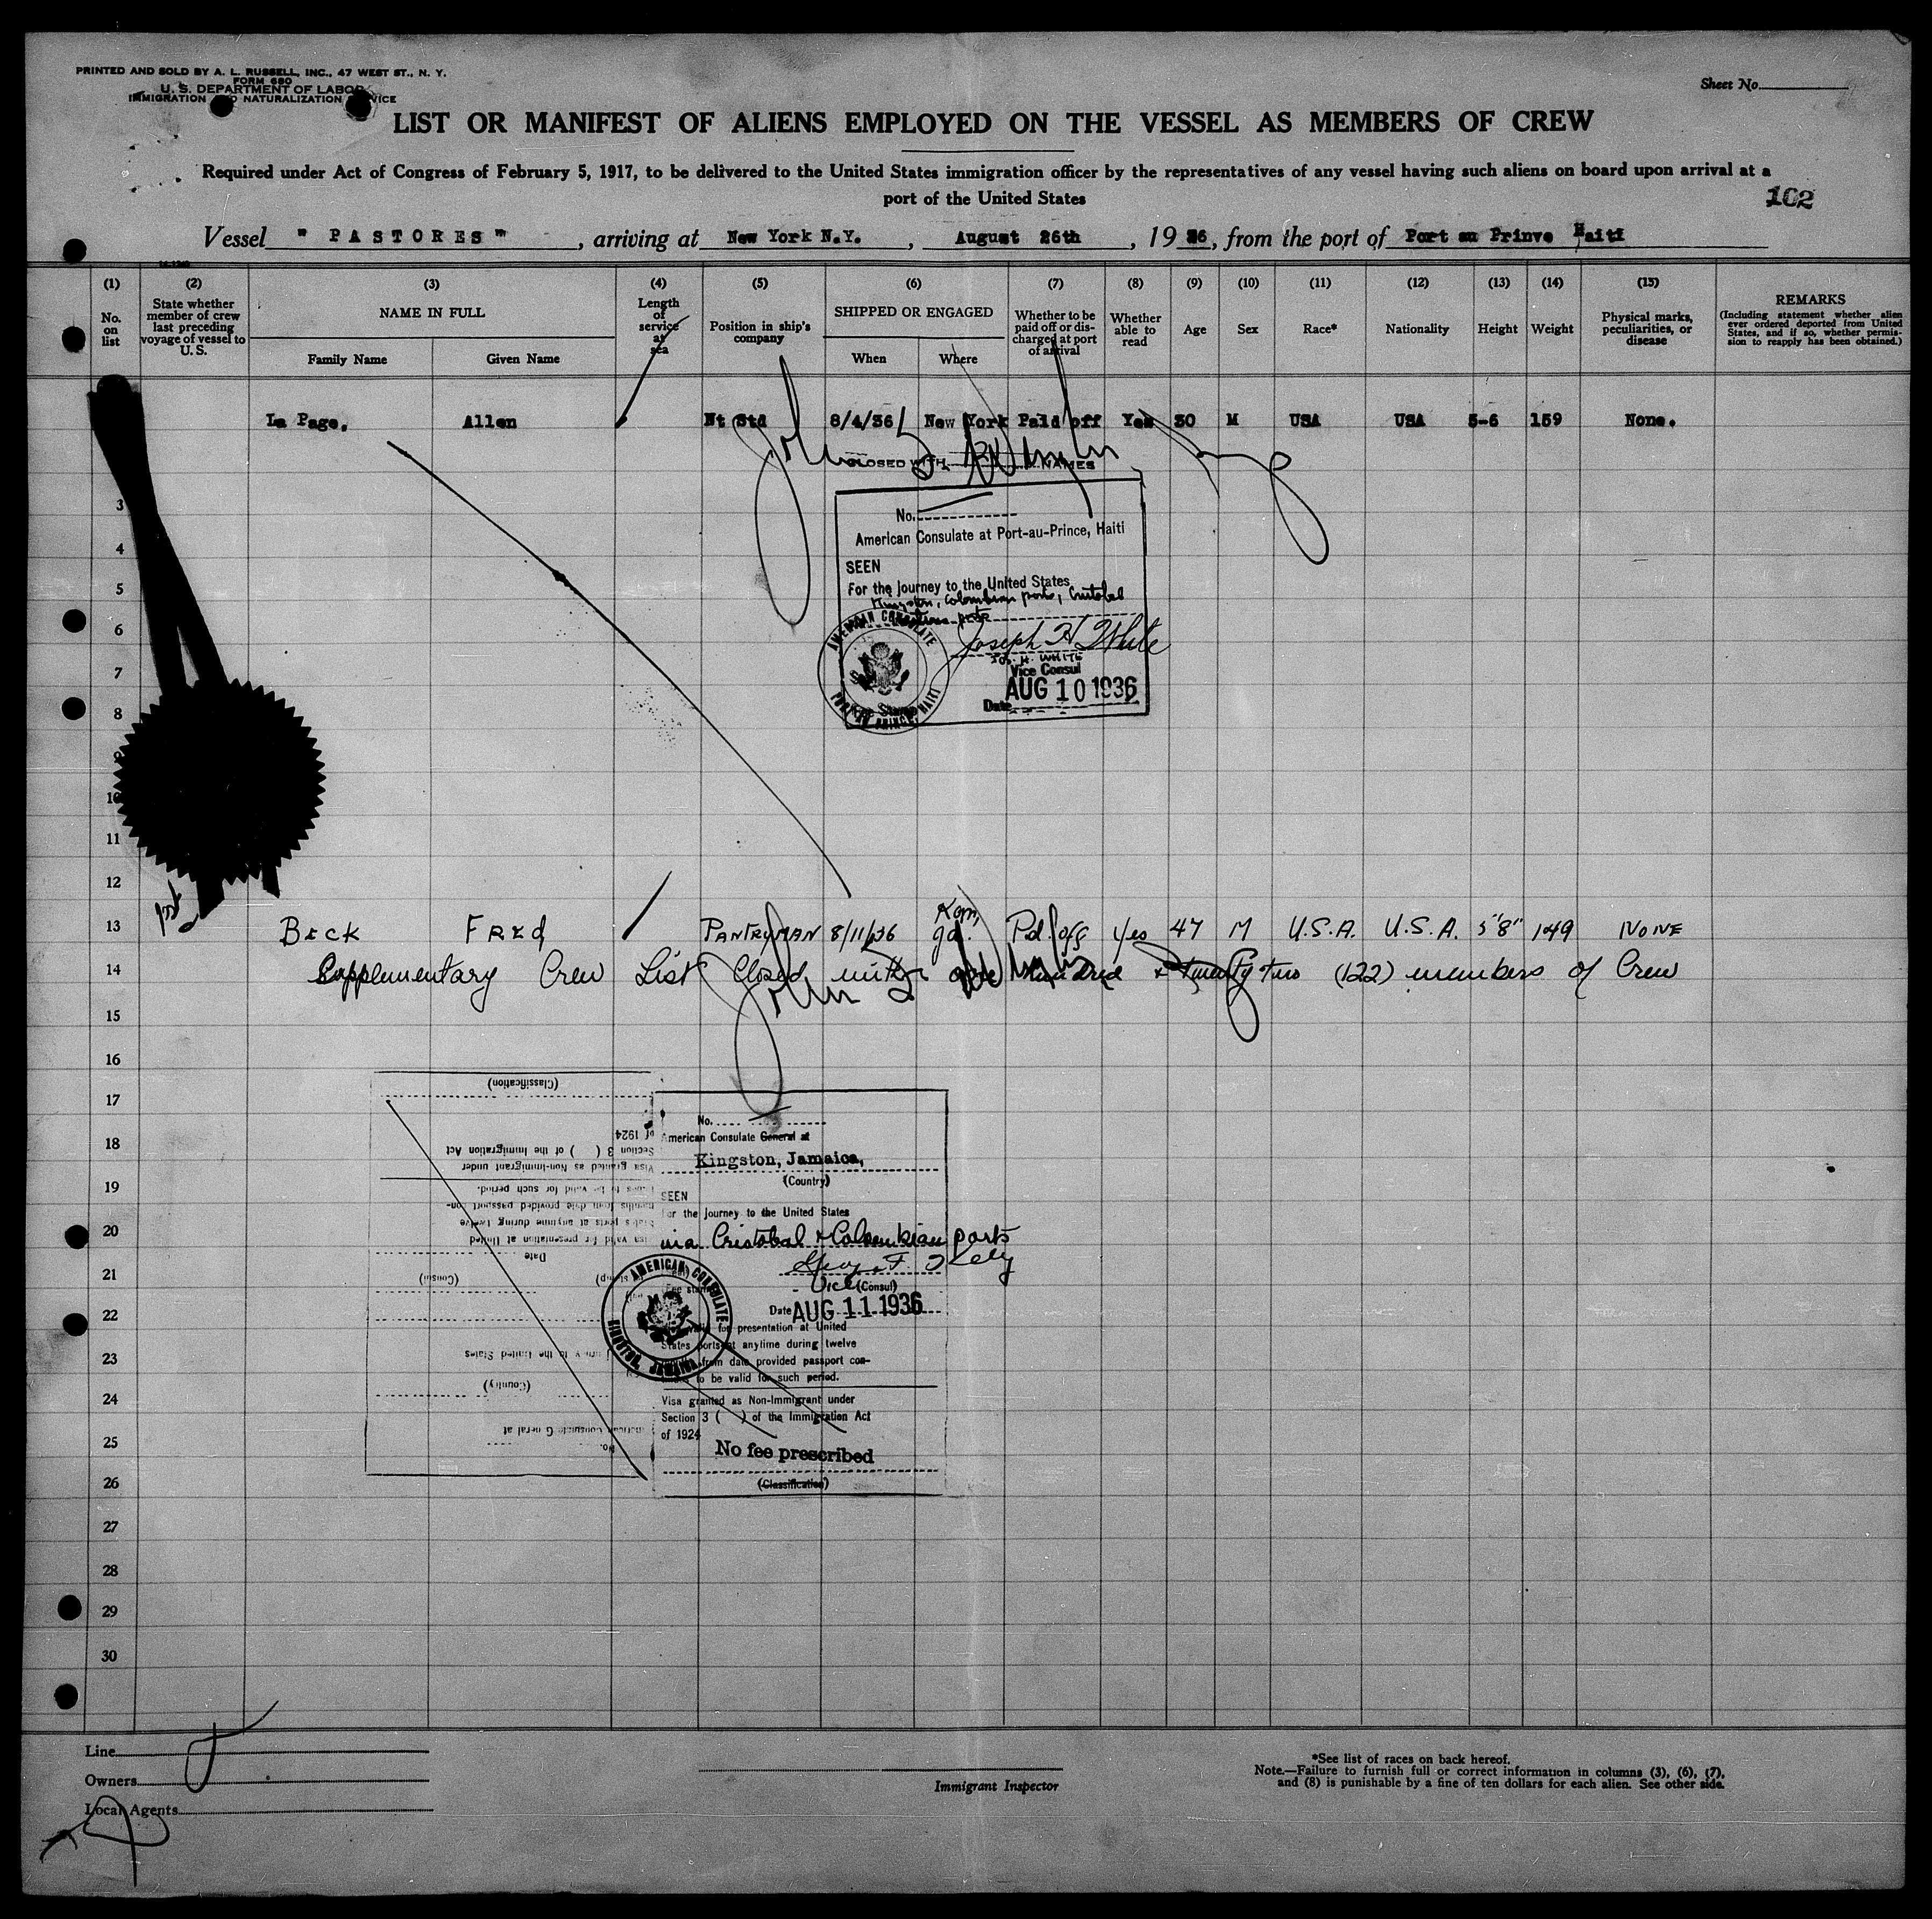 PRINTED AND SOLD BY A. L. RUSSELL, INC., 47 WEST ST., N. Y.
FORM 680
U. S. DEPARTMENT OF LABOR
IMMIGRATION NATURALIZATION VICE
Sheet No.
LIST OR MANIFEST OF ALIENS EMPLOYED ON THE VESSEL AS MEMBERS OF CREW
Required under Act of Congress of February 5, 1917, to be delivered to the United States immigration officer by the representatives of any vessel having such aliens on board upon arrival at a
port of the United States
102
Vessel " PASTORES " , arriving at New York N.Y. , August 26th , 19 36, from the port of Port au Prinve Haiti
(1) (2) (3) (4) (5) (6) (7) (8) (9) (10) (11) (12) (13) (14) (15)
No. on list
State whether member of crew last preceding voyage of vessel to U. S.
NAME IN FULL
Family Name Given Name
Length of service at sea
Position in ship's company
SHIPPED OR ENGAGED
When Where
Whether to be paid off or discharged at port of arrival
Whether able to read
Age
Sex
Race*
Nationality
Height
Weight
Physical marks, peculiarities, or disease
REMARKS
(Including statement whether alien ever ordered deported from United States, and if so, whether permission to reapply has been obtained.)
La Page, Allen Nt Std 8/4/36 New York Paid off Yes 30 M USA USA 5-6 159 None.
CLOSED WITH NAMES
3
No.
American Consulate at Port-au-Prince, Haiti
4
SEEN
5
For the journey to the United States
Kingston, Colombian ports, Cristobal
6
Joseph H White
JOS. H. WHITE
7
Vice Consul
AUG 10 1936
Date
AMERICAN CONSULATE
PORT AU PRINCE, HAITI
8
9
10
11
12
13 Beck Fred PANTRYMAN 8/11/36 Pd. off Yes 47 M U.S.A. U.S.A. 5"8" 149 NONE
14 Supplementary Crew List Closed with one hundred & twenty two (122) members of Crew
15
16
17
18
19
20
21
22
23
24
25
26
27
28
29
30
(Classification)
of 1924
Section 3 ( ) of the Immigration Act
Visa granted as Non-Immigrant under
to be valid for such period.
months from date provided passport con-
States ports at anytime during twelve
valid for presentation at United
Date
(Consul)
to the United States
(Country)
No.
No.
American Consulate General at
Kingston, Jamaica,
(Country)
SEEN
For the journey to the United States
via Cristobal & Colombian ports
Vice (Consul)
Date AUG 11 1936
AMERICAN CONSULATE
KINGSTON, JAMAICA
for presentation at United
States ports at anytime during twelve
from date provided passport con-
to be valid for such period.
Visa granted as Non-Immigrant under
Section 3 ( ) of the Immigration Act
of 1924
No fee prescribed
(Classification)
Line
Owners
Local Agents
Immigrant Inspector
*See list of races on back hereof.
Note.—Failure to furnish full or correct information in columns (3), (6), (7),
and (8) is punishable by a fine of ten dollars for each alien. See other side.